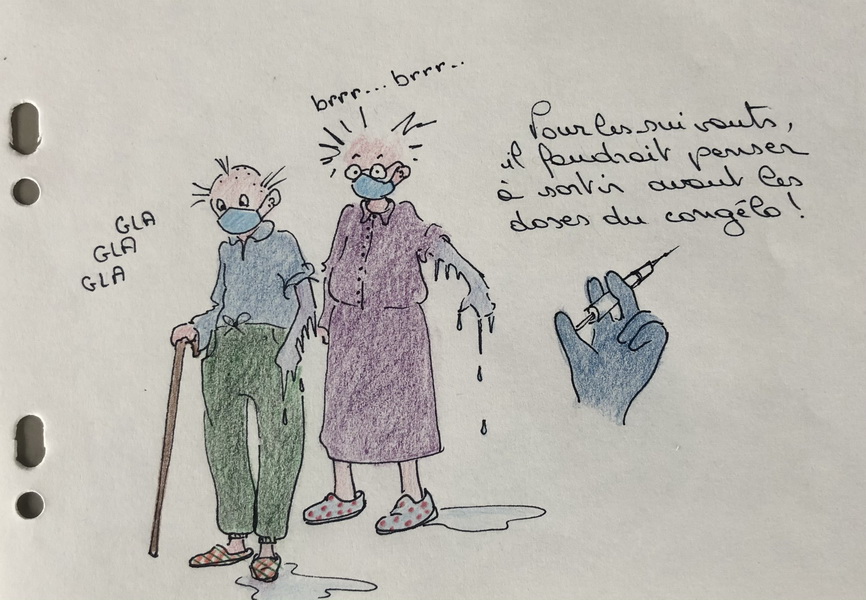 brrr... brrr..
GLA
GLA
GLA
Pour les suivants,
il faudrait penser
à sortir avant les
doses du congélo !